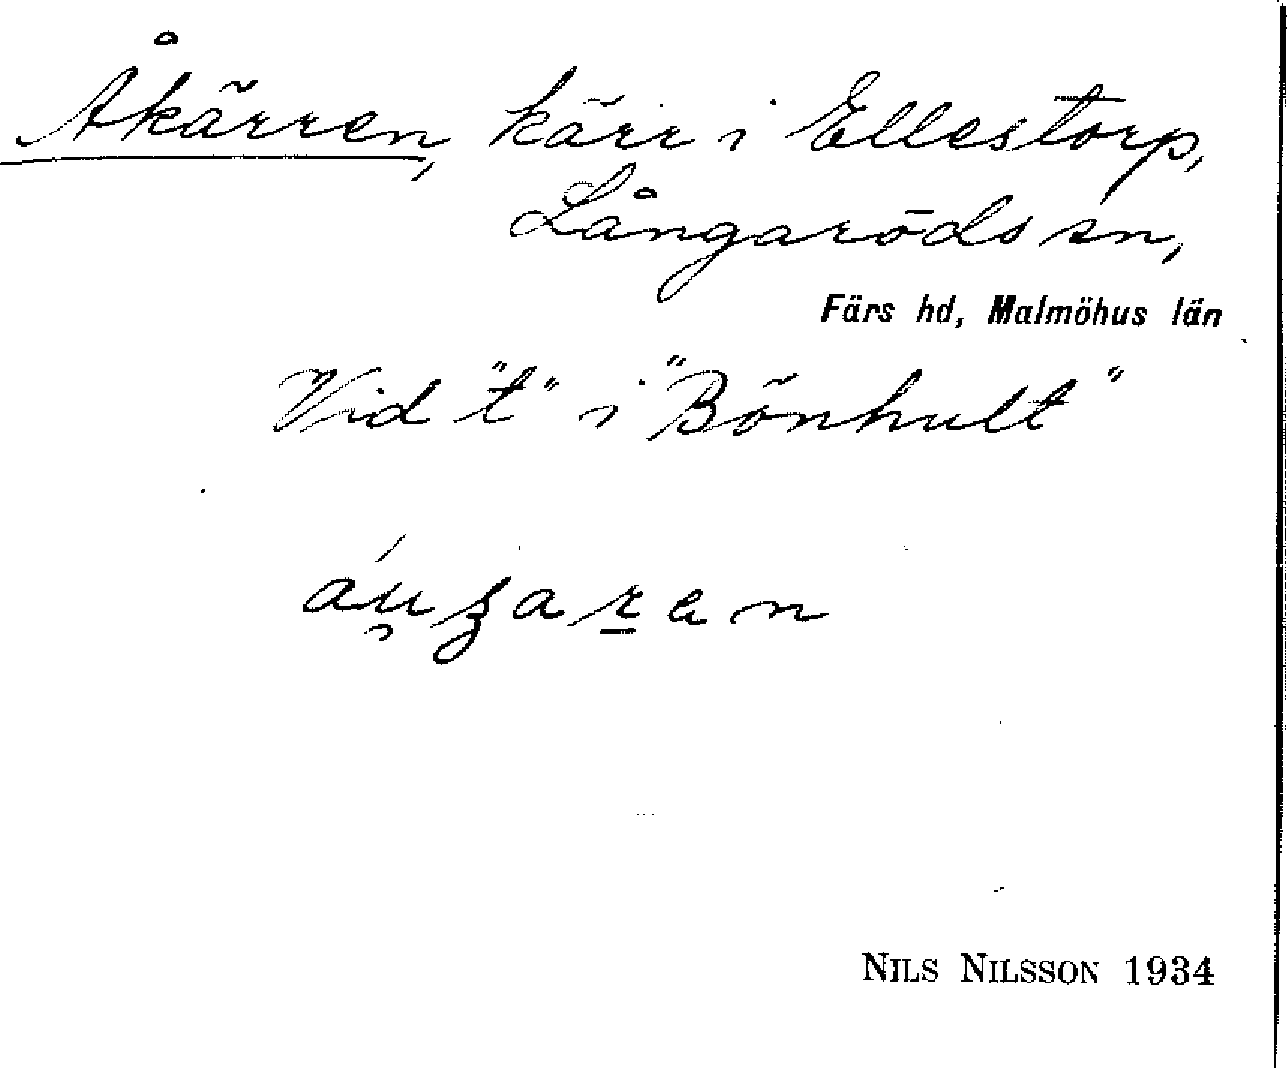 Åkärren, kärr i Ellestorp,
Långaröds sn,
Färs hd, Malmöhus län
Vid "t" i "Bönhult"
NILS NILSSON 1934